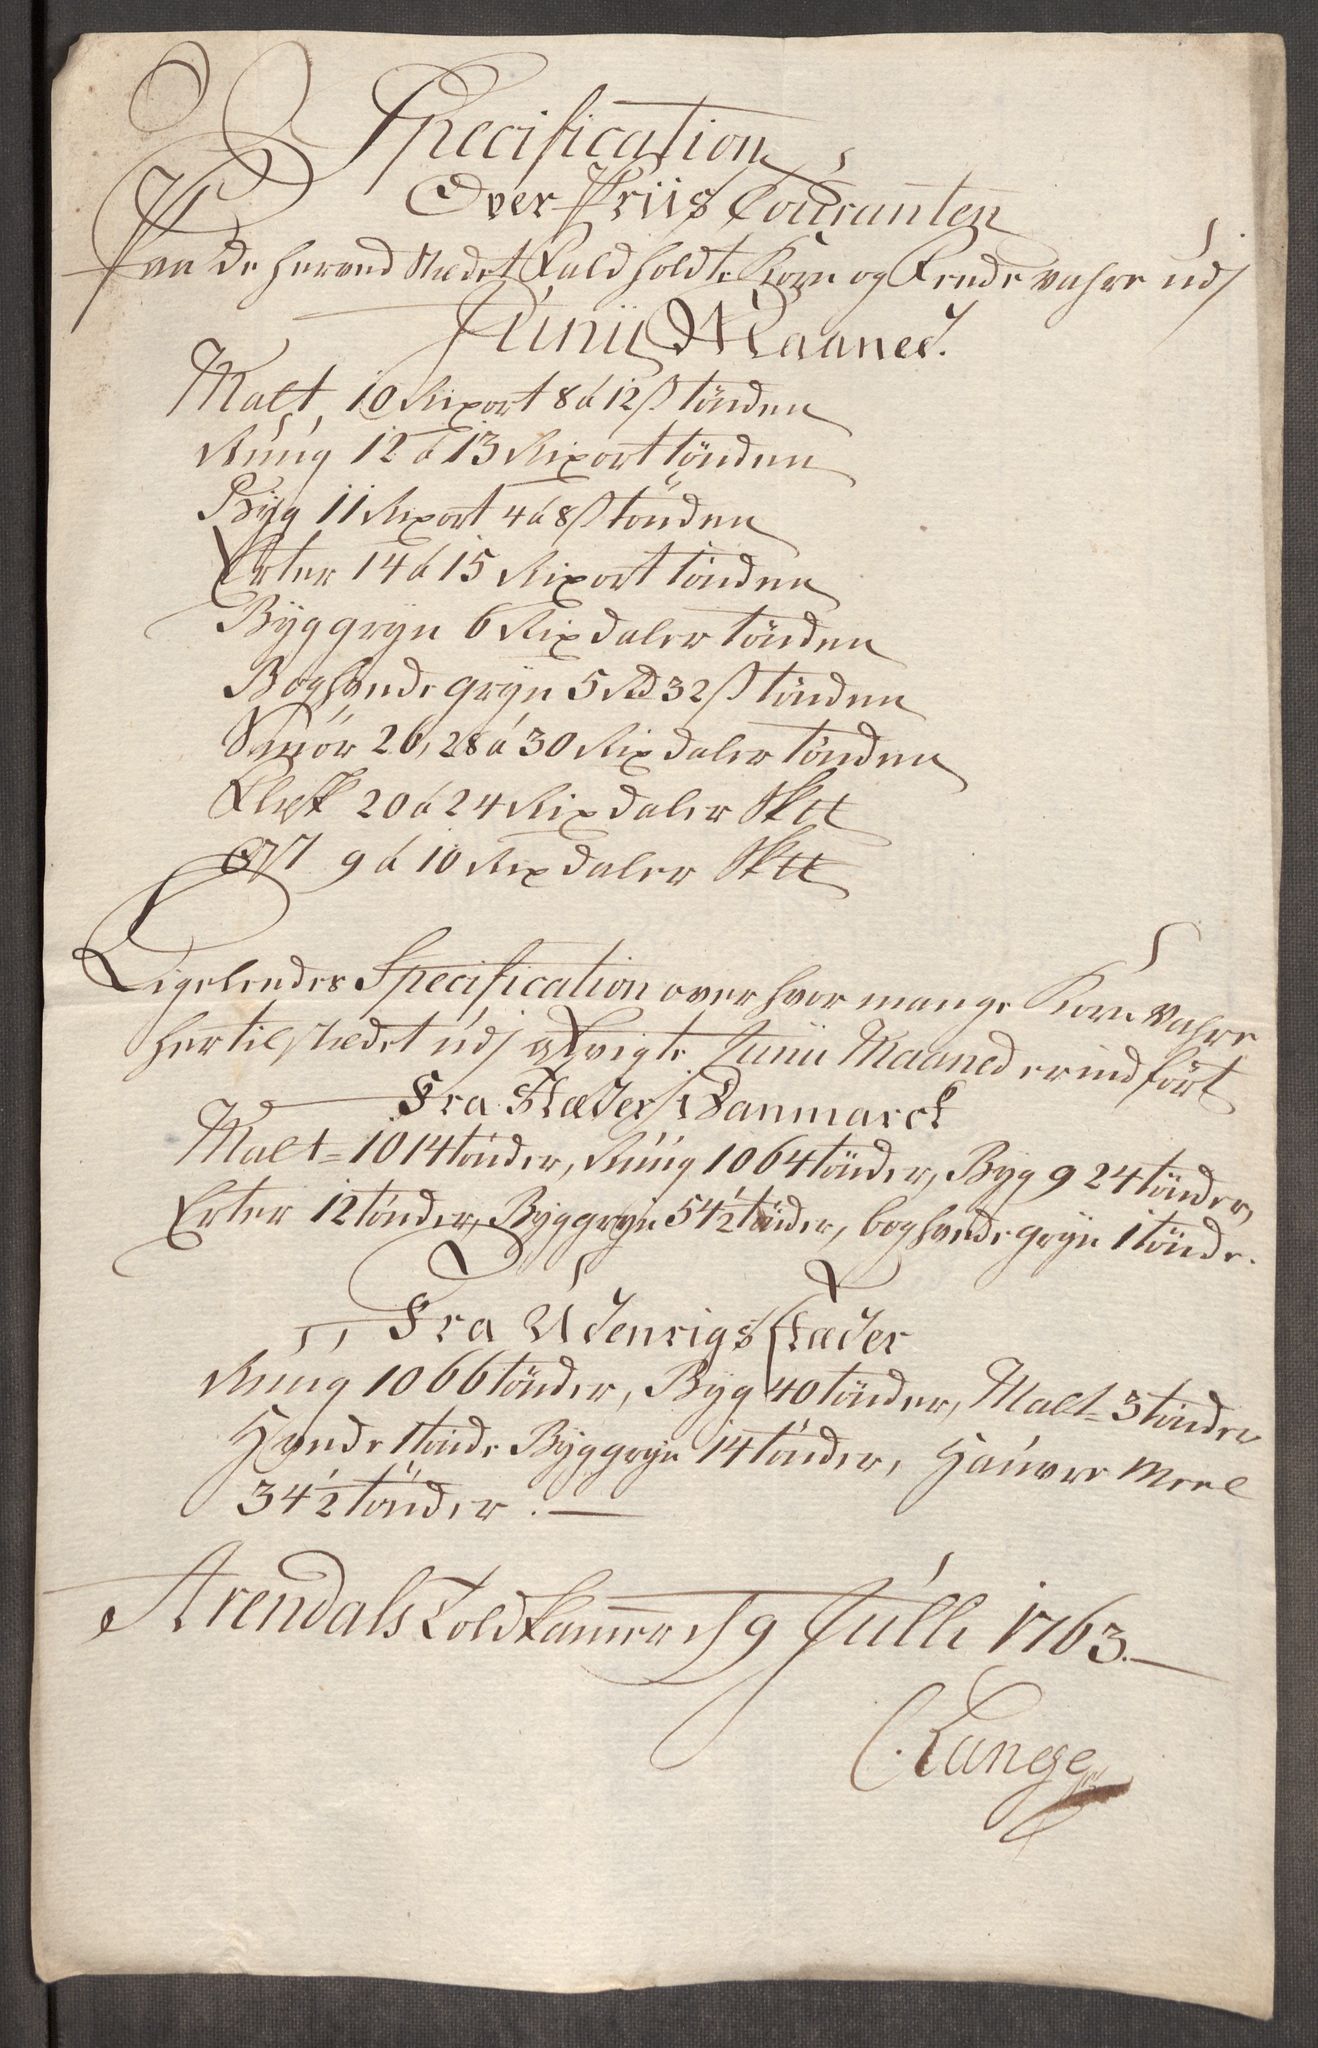 Specification
Over Priis Couranten
Paa de herved Stædet Fald holdte Korn og Fede vahre udj
Junij Maaned.
Malt 10 Rixort 8 á 12 ß tönden
Rúúg 12 á 13 Rixort tönden
Byg 11 Rixort 4 á 8 ß tönden
Erter 14 á 15 Rixort tönden
Byggryn 6 Rixdaler tönden
Boghvede gryn 5 Rd 32 ß tönden
Smör 26, 28 á 30 Rixdaler tönden
Flesk 20 á 24 Rixdaler Sktt
Ost 9 á 10 Rixdaler Sktt
Ligeledes Specification over hvor mange Korn Vahre
hertil Stædet udj afvigte Junii Maaned er indfört
Fra Stæder i Danmarck
Malt = 1014 tönder, Rúúg 1064 tönder, Byg 924 tönder,
Erter 12 tönder, Byggryn 54½ tönder, boghvede gryn 1 tönde.
Fra Udenrigs Stæder
Rúúg 1066 tönder, Byg 40 tönder, Malt = 3 tönder
Hvede 1 tönde Byggryn 14 tönder, Haúvre Meel
34½ tönder. —
Arendals Toldkammer d 9 Julli 1763. —
C. Lange